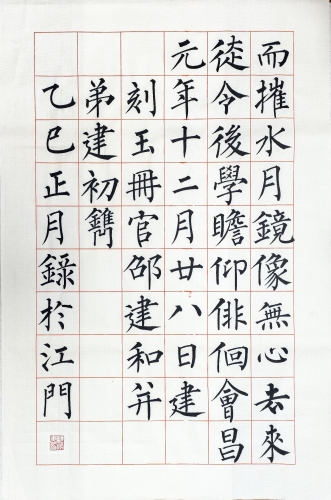 而摧水月鏡像無心去來
徒令後學瞻仰俳佪會昌
元年十二月廿八日建
刻玉冊官邵建和并
弟建初鐫
乙巳正月錄於江門